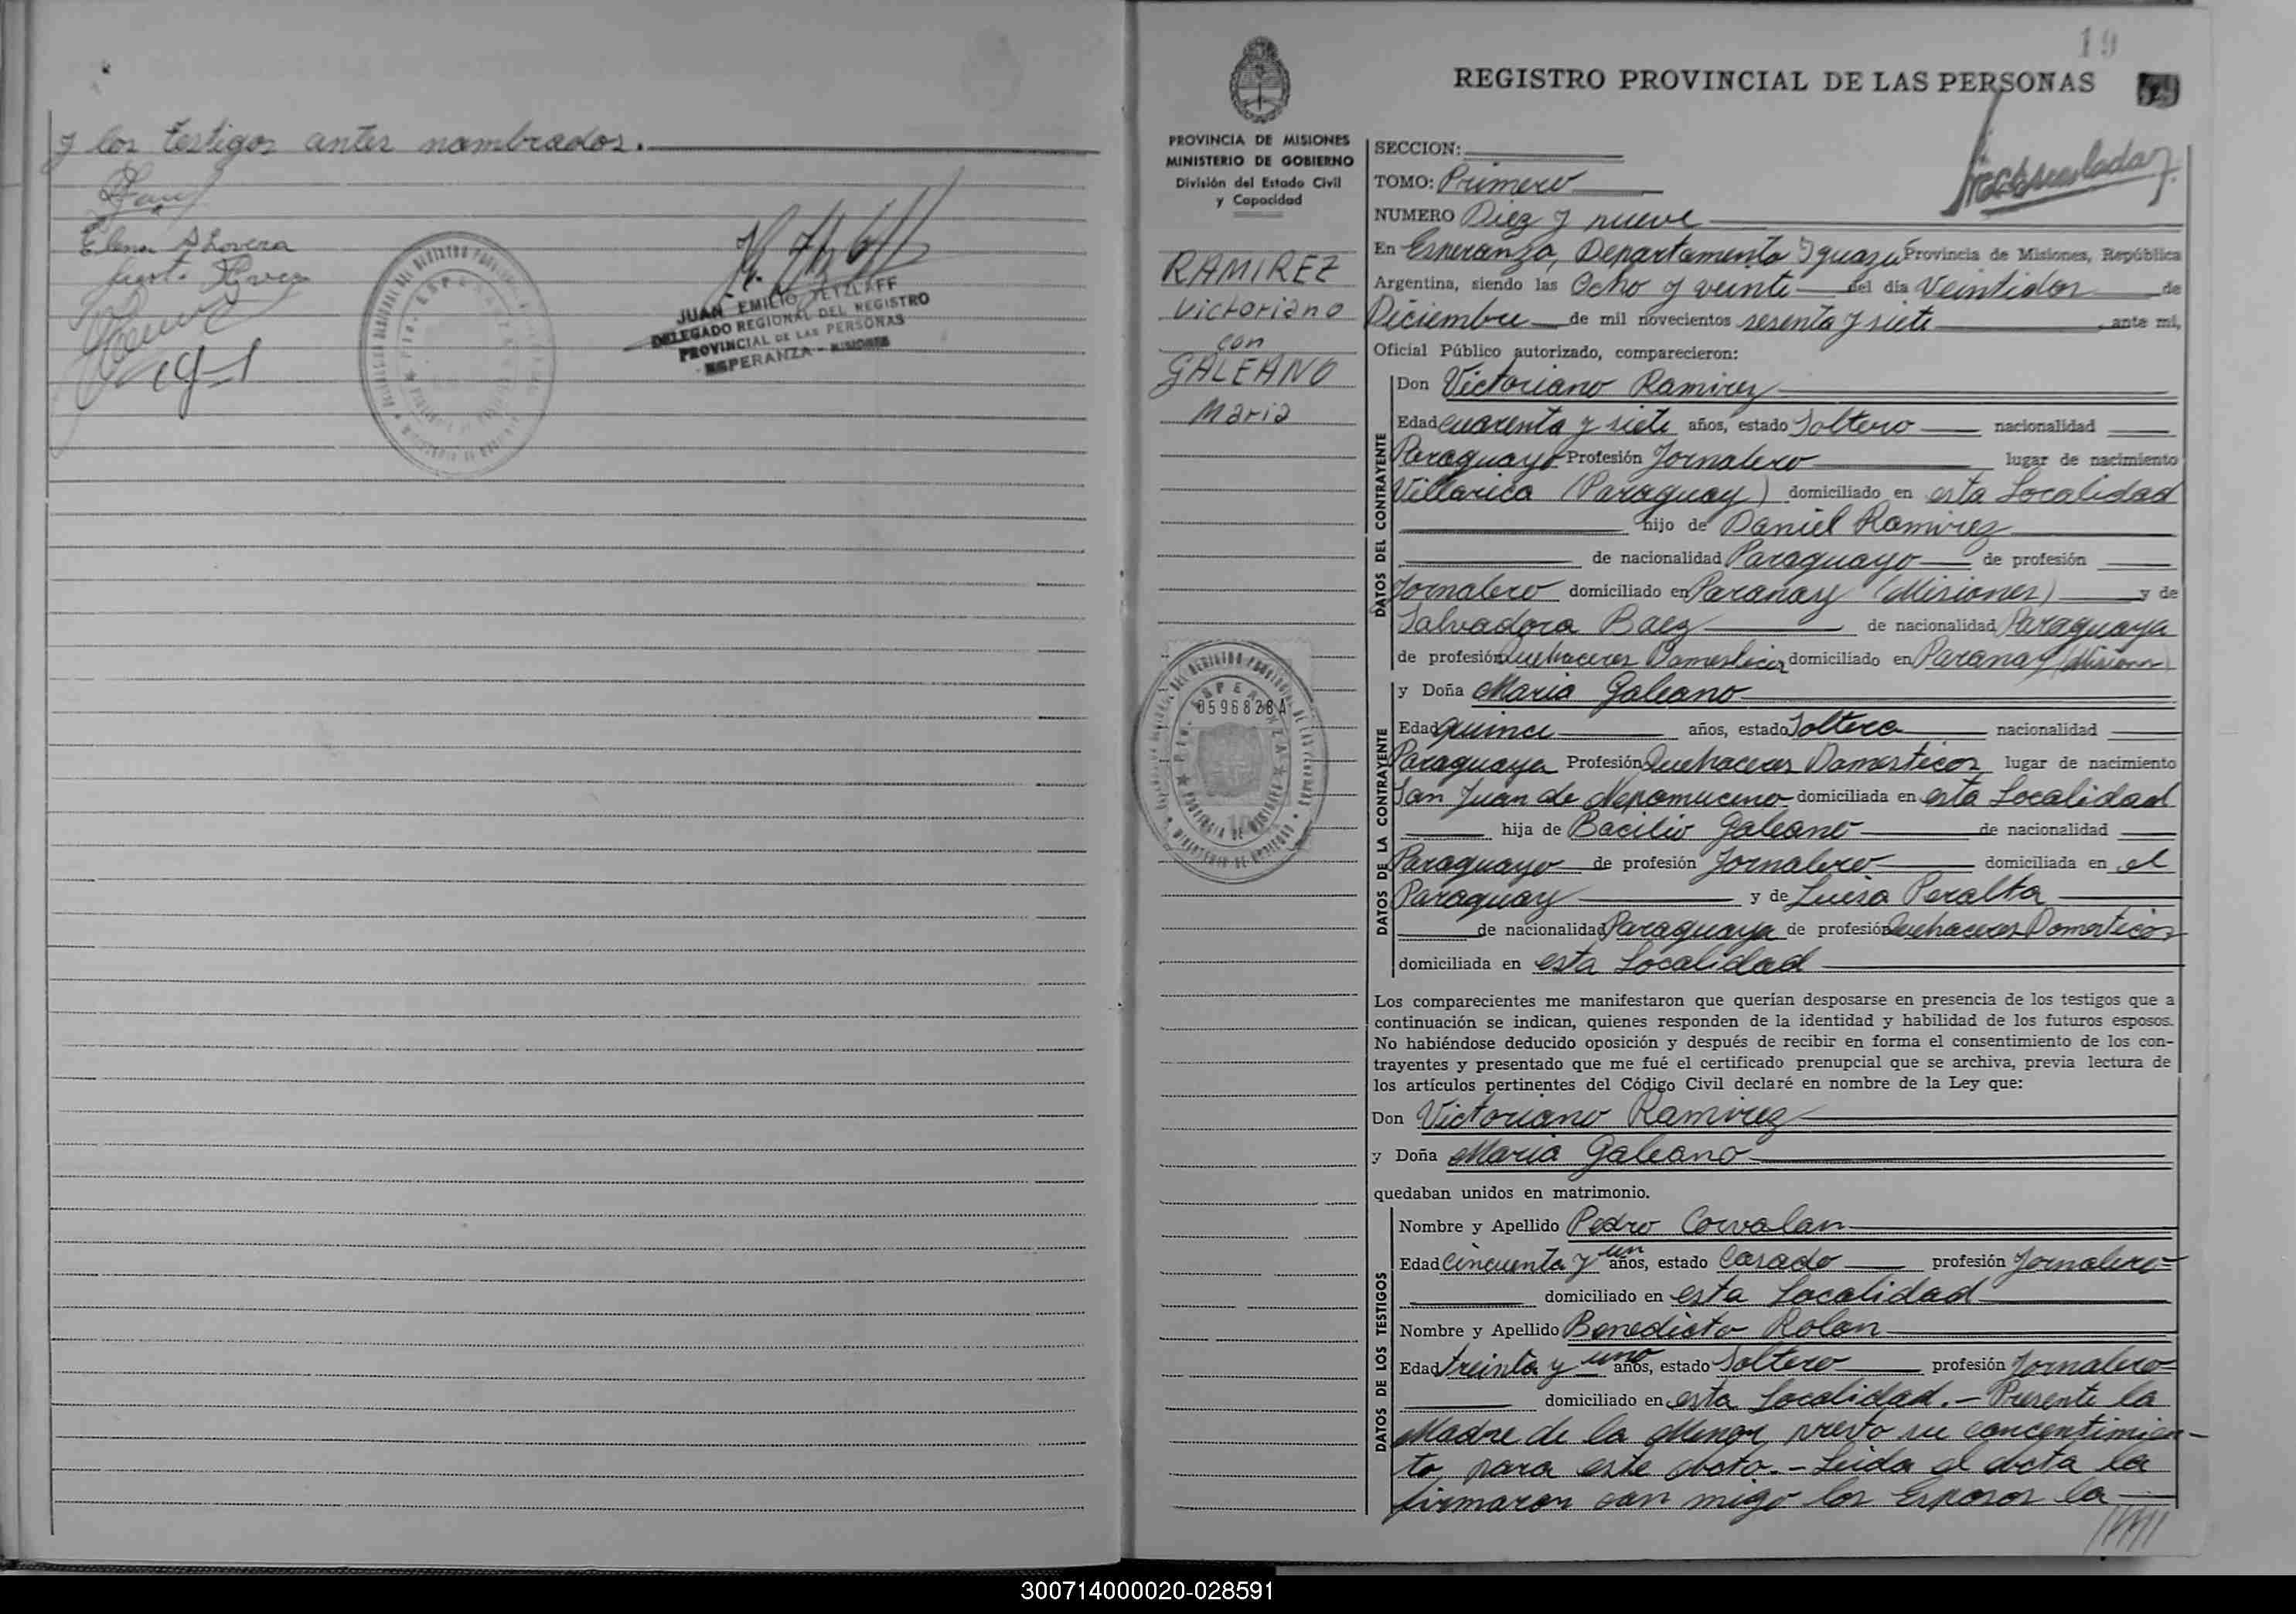 y los testigos antes nombrados.
Elena
JUAN EMILIO TETZLAFF
DELEGADO REGIONAL DEL REGISTRO
PROVINCIAL DE LAS PERSONAS
ESPERANZA - MISIONES
19
REGISTRO PROVINCIAL DE LAS PERSONAS
PROVINCIA DE MISIONES
MINISTERIO DE GOBIERNO
División del Estado Civil
y Capacidad
SECCION:
TOMO: Primero
NUMERO Diez y nueve
En Esperanza, Departamento Iguazú Provincia de Misiones, República
Argentina, siendo las Ocho y veinte del día Veintidos de
Diciembre de mil novecientos sesenta y siete, ante mi,
Oficial Público autorizado, comparecieron:
RAMIREZ
Victoriano
con
GALEANO
Maria
0596828A
DATOS DEL CONTRAYENTE
Don Victoriano Ramirez
Edad cuarenta y siete años, estado Soltero nacionalidad
Paraguayo Profesión Jornalero lugar de nacimiento
Villarica (Paraguay) domiciliado en esta Localidad
hijo de Daniel Ramirez
de nacionalidad Paraguayo de profesión
Jornalero domiciliado en Paranay (Misiones) y de
Salvadora Baez de nacionalidad Paraguaya
de profesión Quehaceres Domesticos domiciliado en Paranay (Misiones)
DATOS DE LA CONTRAYENTE
y Doña Maria Galeano
Edad quince años, estado Soltera nacionalidad
Paraguaya Profesión Quehaceres Domesticos lugar de nacimiento
San Juan de Nepomuceno domiciliada en esta Localidad
hija de Bacilio Galeano de nacionalidad
Paraguayo de profesión Jornalero domiciliada en el
Paraguay y de Luisa Peralta
de nacionalidad Paraguaya de profesión Quehaceres Domesticos
domiciliada en esta Localidad
Los comparecientes me manifestaron que querían desposarse en presencia de los testigos que a
continuación se indican, quienes responden de la identidad y habilidad de los futuros esposos.
No habiéndose deducido oposición y después de recibir en forma el consentimiento de los con-
trayentes y presentado que me fué el certificado prenupcial que se archiva, previa lectura de
los artículos pertinentes del Código Civil declaré en nombre de la Ley que:
Don Victoriano Ramirez
y Doña Maria Galeano
quedaban unidos en matrimonio.
DATOS DE LOS TESTIGOS
Nombre y Apellido Pedro Corvalan
Edad Cincuenta y un años, estado Casado profesión Jornalero
domiciliado en esta Localidad
Nombre y Apellido Benedicto Rolon
Edad treinta y uno años, estado Soltero profesión Jornalero
domiciliado en esta Localidad.- Presente la
Madre de la Menor presto su concentimien-
to para este acto.- Leida el acta la
firmaron con migo los Esposos la
300714000020-028591